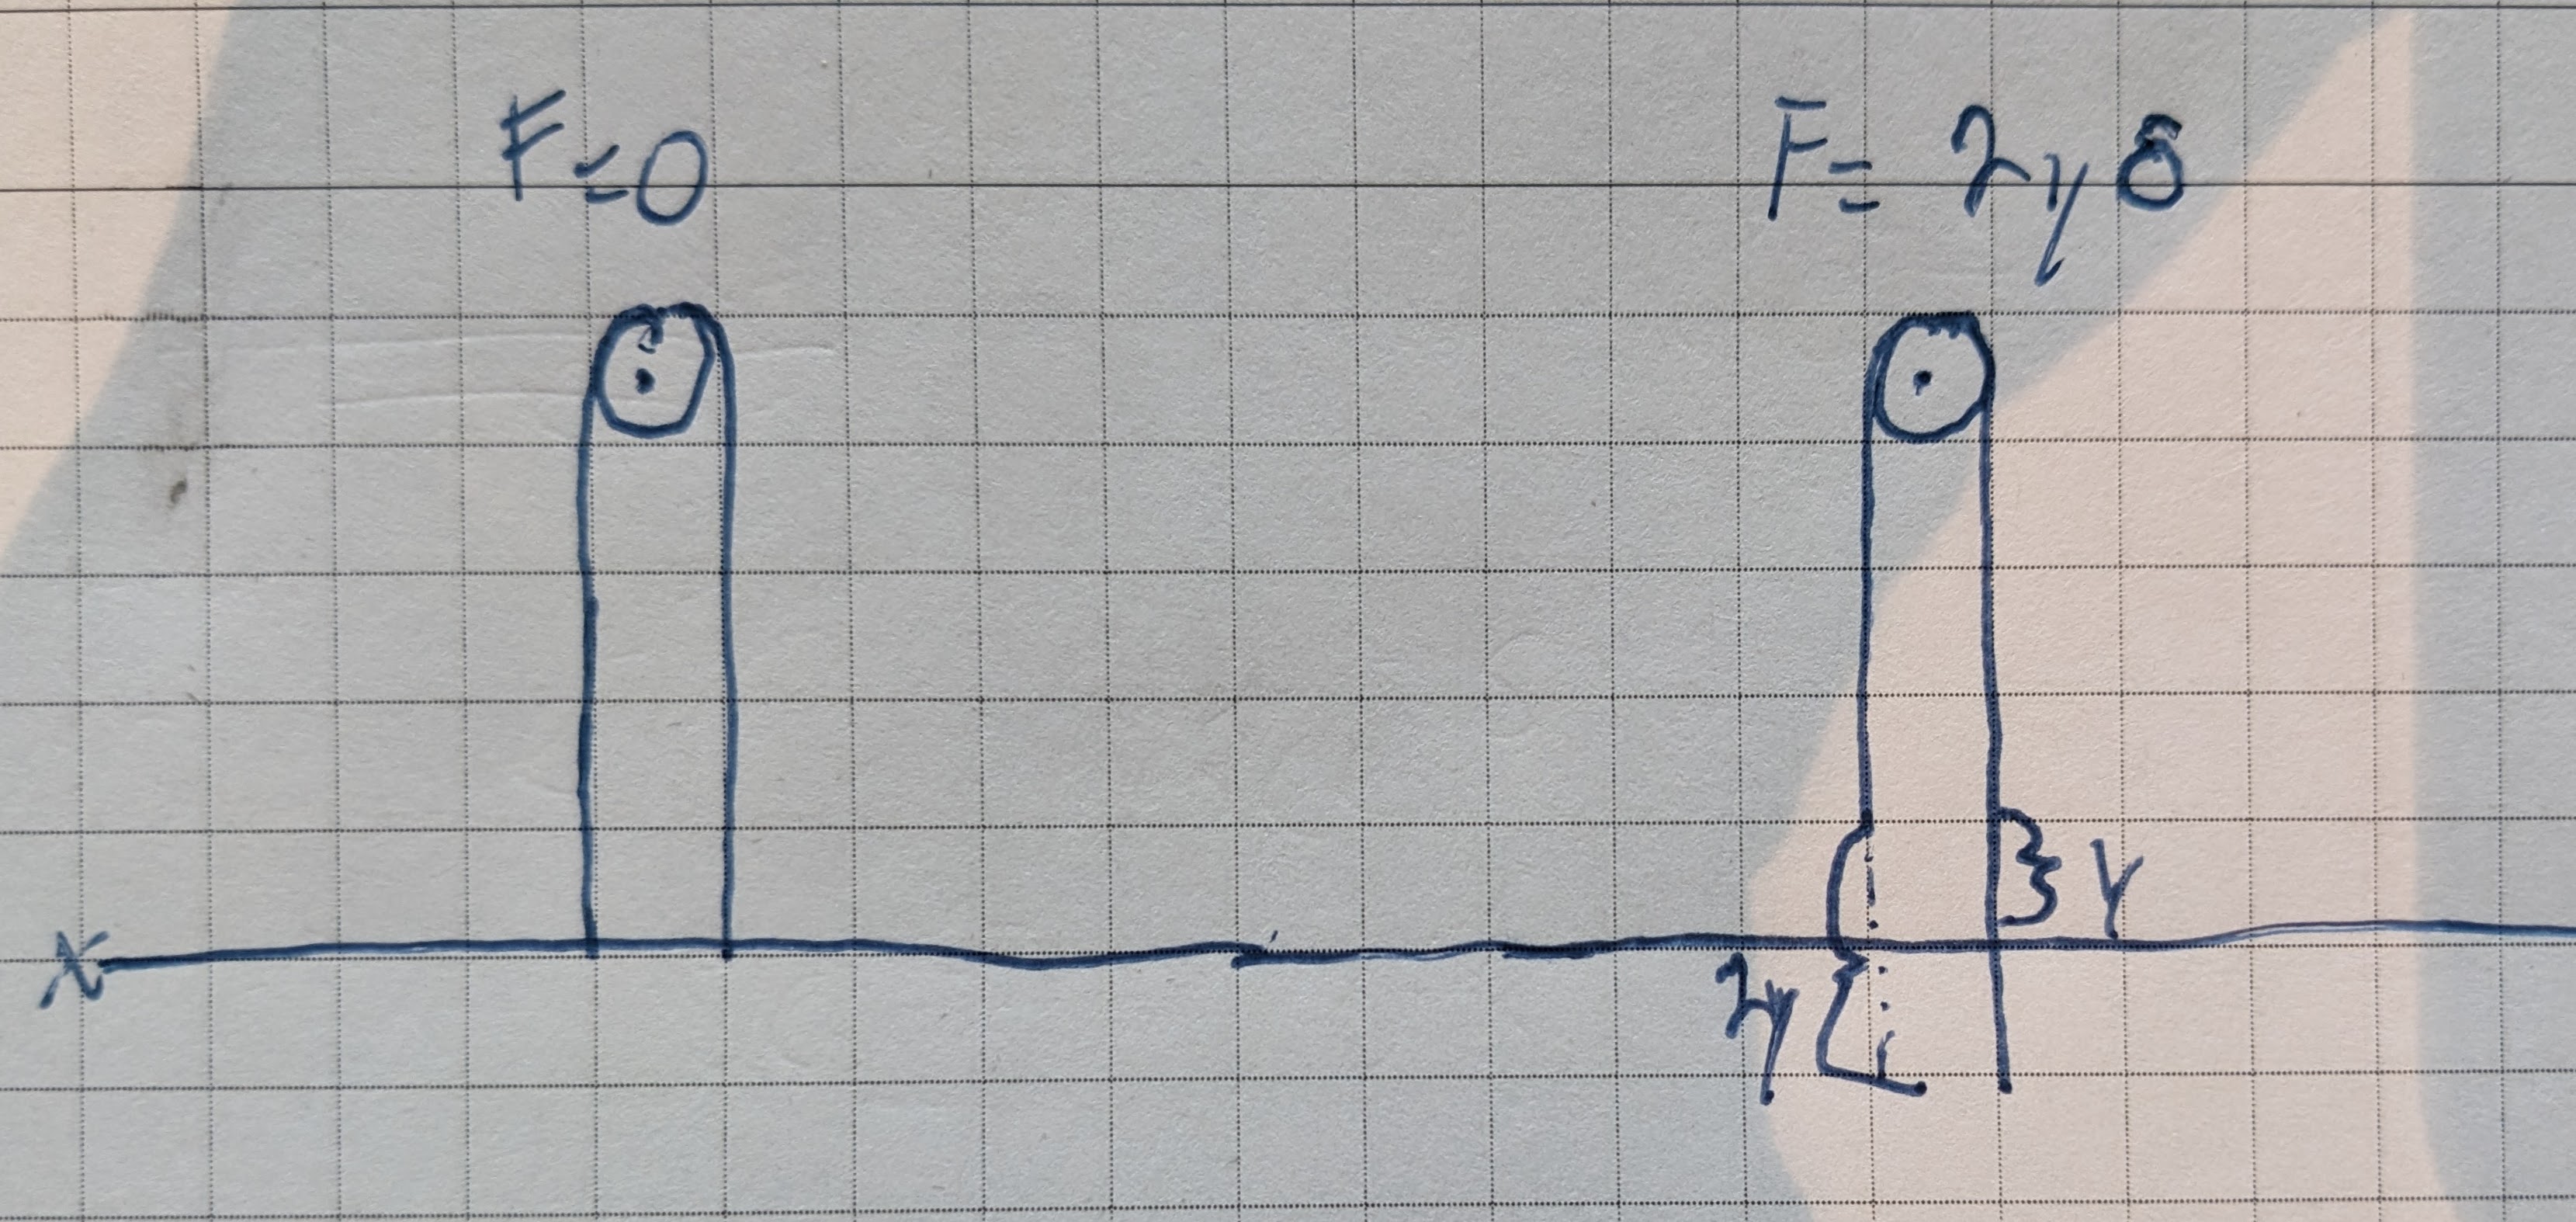 F=0
F= 2yδ
y
2y
x